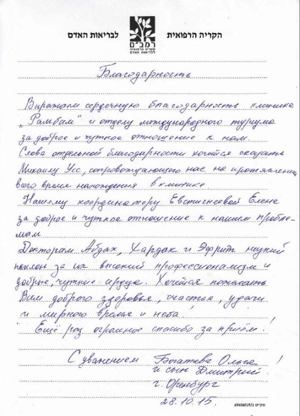 הקריה הרפואית לבריאות האדם
רמב"ם
Благодарность
Выражаем сердечную благодарность клинике
„Рамбам" и отделу международного туризма
за доброе и чуткое отношение к нам.
Слова отдельной благодарности хочется сказать
Михаилу Усс, сопровождающего нас на протяжении
всего время нахождения в клинике.
Нашему координатору Евстигнеевой Елене
за доброе и чуткое отношение к нашим пробле-
мам.
Докторам: Абдах, Хардак и Эфрат низкий
поклон за их высокий профессионализм и
доброе, чуткие сердце. Хочется пожелать
Всем доброго здоровья, счастья, удачи
и мирного время и неба!
Ещё раз огромное спасибо за приём!
С уважением Богатева Ольга
и сын Дмитрий!
г. Оренбург
28.10.15.